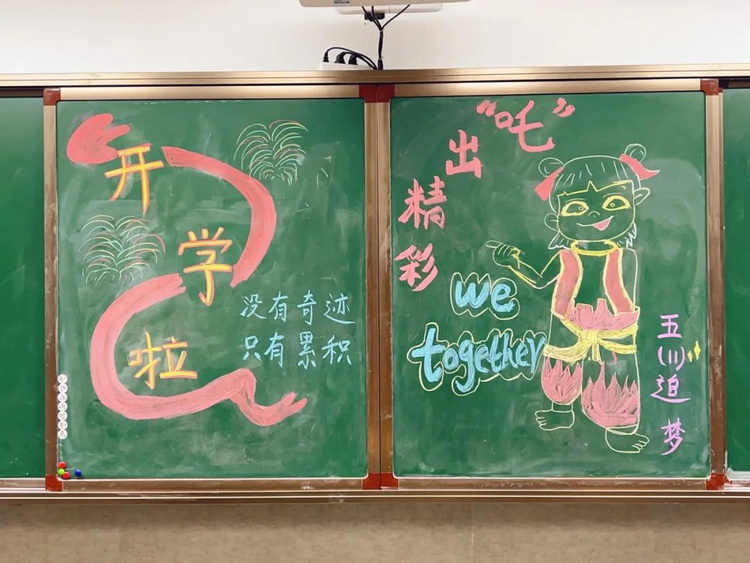 开学啦
没有奇迹
只有累积
“吒”出精彩
we
together
五
追梦